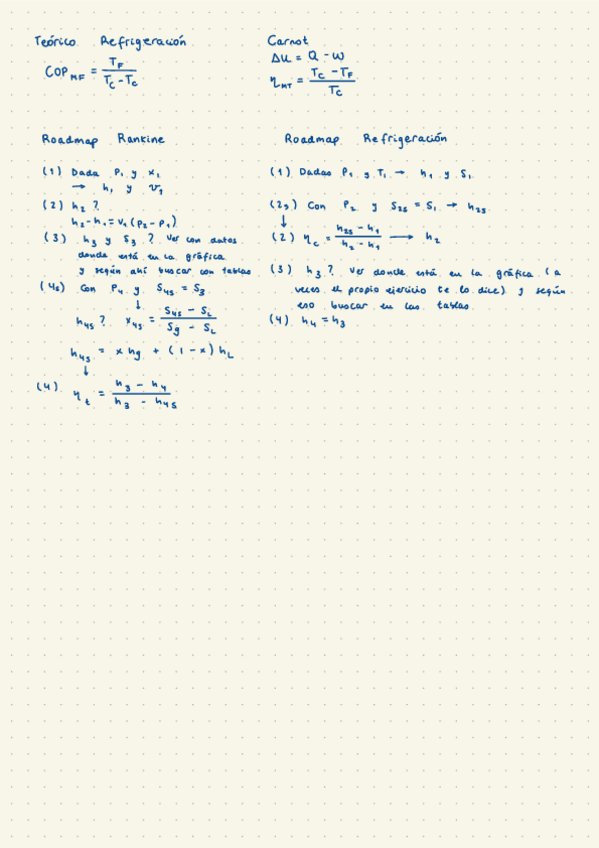 Teórico Refrigeración
COP_MF = T_F / (T_C - T_C)
Carnot
ΔU = Q - W
η_MT = (T_C - T_F) / T_C
Roadmap Rankine
(1) Dada P₁ y x₁
→ h₁ y v₁
(2) h₂ ?
h₂ - h₁ = v₁ (p₂ - p₁)
(3) h₃ y s₃ ? Ver con datos
donde está en la gráfica
y según ahí buscar con tablas
(4s) Con P₄ y s₄s = s₃
↓
h₄s ? x₄s = (s₄s - s_L) / (s_g - s_L)
h₄s = x hg + (1 - x) h_L
↓
(4) η_t = (h₃ - h₄) / (h₃ - h₄s)
Roadmap Refrigeración
(1) Dadas P₁ y T₁ → h₁ y s₁
(2s) Con P₂ y s₂s = s₁ → h₂s
↓
(2) η_c = (h₂s - h₁) / (h₂ - h₁) → h₂
(3) h₃ ? Ver donde está en la gráfica (a
veces el propio ejercicio te lo dice) y según
eso buscar en las tablas
(4) h₄ = h₃